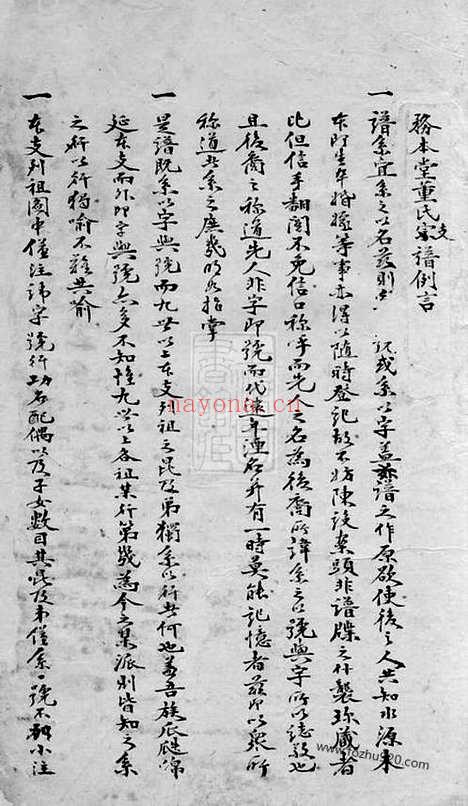 務本堂董氏家支譜例言
一 譜系宜系之以名茲則 或系以字蓋茲譜之作原欲使後之人共知水源木
本即生卒婚嫁等事亦得以隨時登記故不妨陳設案頭非譜牒之什襲珍藏者
比但信手翻閱不免信口稱呼而先人之名為後裔所諱系之以號與字所以誌敬也
且後裔之稱道先人非字即號而代遠年湮名并有一時莫能記憶者茲即以與所
稱道者系之庶幾明如指掌
一 是譜既系以字與號而九世以上本支列祖之昆及弟獨系以行者何也蓋吾族瓜瓞綿
延本支而外即字與號亦多不知惟九世以上各祖某行第幾為今之某派則皆知之系
之行以行獨喻不難共喻
一 本支列祖圖中僅注諱字號行功名配偶以及子女數目其昆及弟僅系一號不 小注
nayona.cn
fozhu920.com